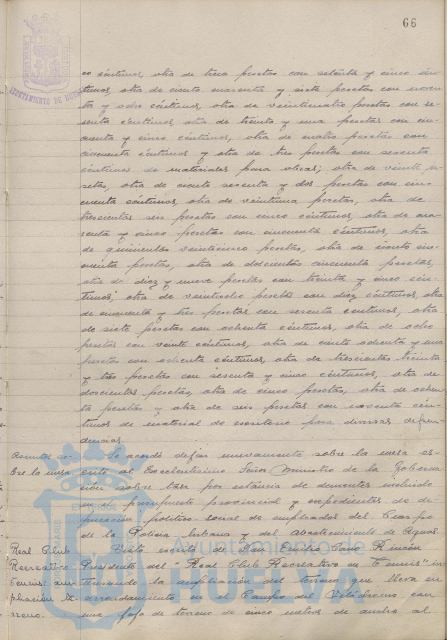 66
AYUNTAMIENTO DE HUELVA
co céntimos, otra de trece pesetas con setenta y cinco cén-
timos, otra de ciento cuarenta y siete pesetas con noven-
ta y ocho céntimos, otra de veinticuatro pesetas con se-
senta céntimos, otra de treinta y una pesetas con cin-
cuenta y cinco céntimos, otra de cuatro pesetas con
cincuenta céntimos y otra de tres pesetas con sesenta
céntimos de materiales para obras; otra de veinte pe-
setas, otra de ciento sesenta y dos pesetas con cin-
cuenta céntimos, otra de veintiuna pesetas, otra de
trescientas seis pesetas con cinco céntimos, otra de
y cinco pesetas con cincuenta céntimos, otra
de quinientas veinticinco pesetas, otra de ciento cin-
cuenta pesetas, otra de doscientas cincuenta pesetas,
otra de diez y nueve pesetas con treinta y cinco cén-
timos; otra de veintiocho pesetas con diez céntimos, otra
de cincuenta y tres pesetas con sesenta céntimos, otra
de siete pesetas con ochenta céntimos, otra de ocho
pesetas con veinte céntimos, otra de ciento ochenta y una
pesetas con ochenta céntimos, otra de trescientas treinta
y tres pesetas con sesenta y cinco céntimos, otra de
doscientas pesetas, otra de cinco pesetas, otra de ochen-
ta pesetas y otra de seis pesetas con noventa cén-
timos de material de escritorio para diversas depen-
dencias.
Asuntos so-
bre la mesa
Se acordó dejar nuevamente sobre la mesa es-
crito al Excelentísimo Señor Ministro de la Goberna-
ción sobre tasa por estancia de dementes incluido
en el presupuesto provincial y expedientes de de-
puración político-social de empleados del Cuerpo
de la Policía Urbana y del Abastecimiento de Aguas.
Real Club
Recreativo
Tennis: am-
pliación te-
rreno.
Visto escrito de Don Emilio Cano Rincón
Presidente del "Real Club Recreativo de Tennis" in-
teresando la ampliación del terreno que lleva en
arrendamiento en el Campo del Velódromo, con
una faja de terreno de cinco metros de ancho al
Ayuntamiento de
HUELVA